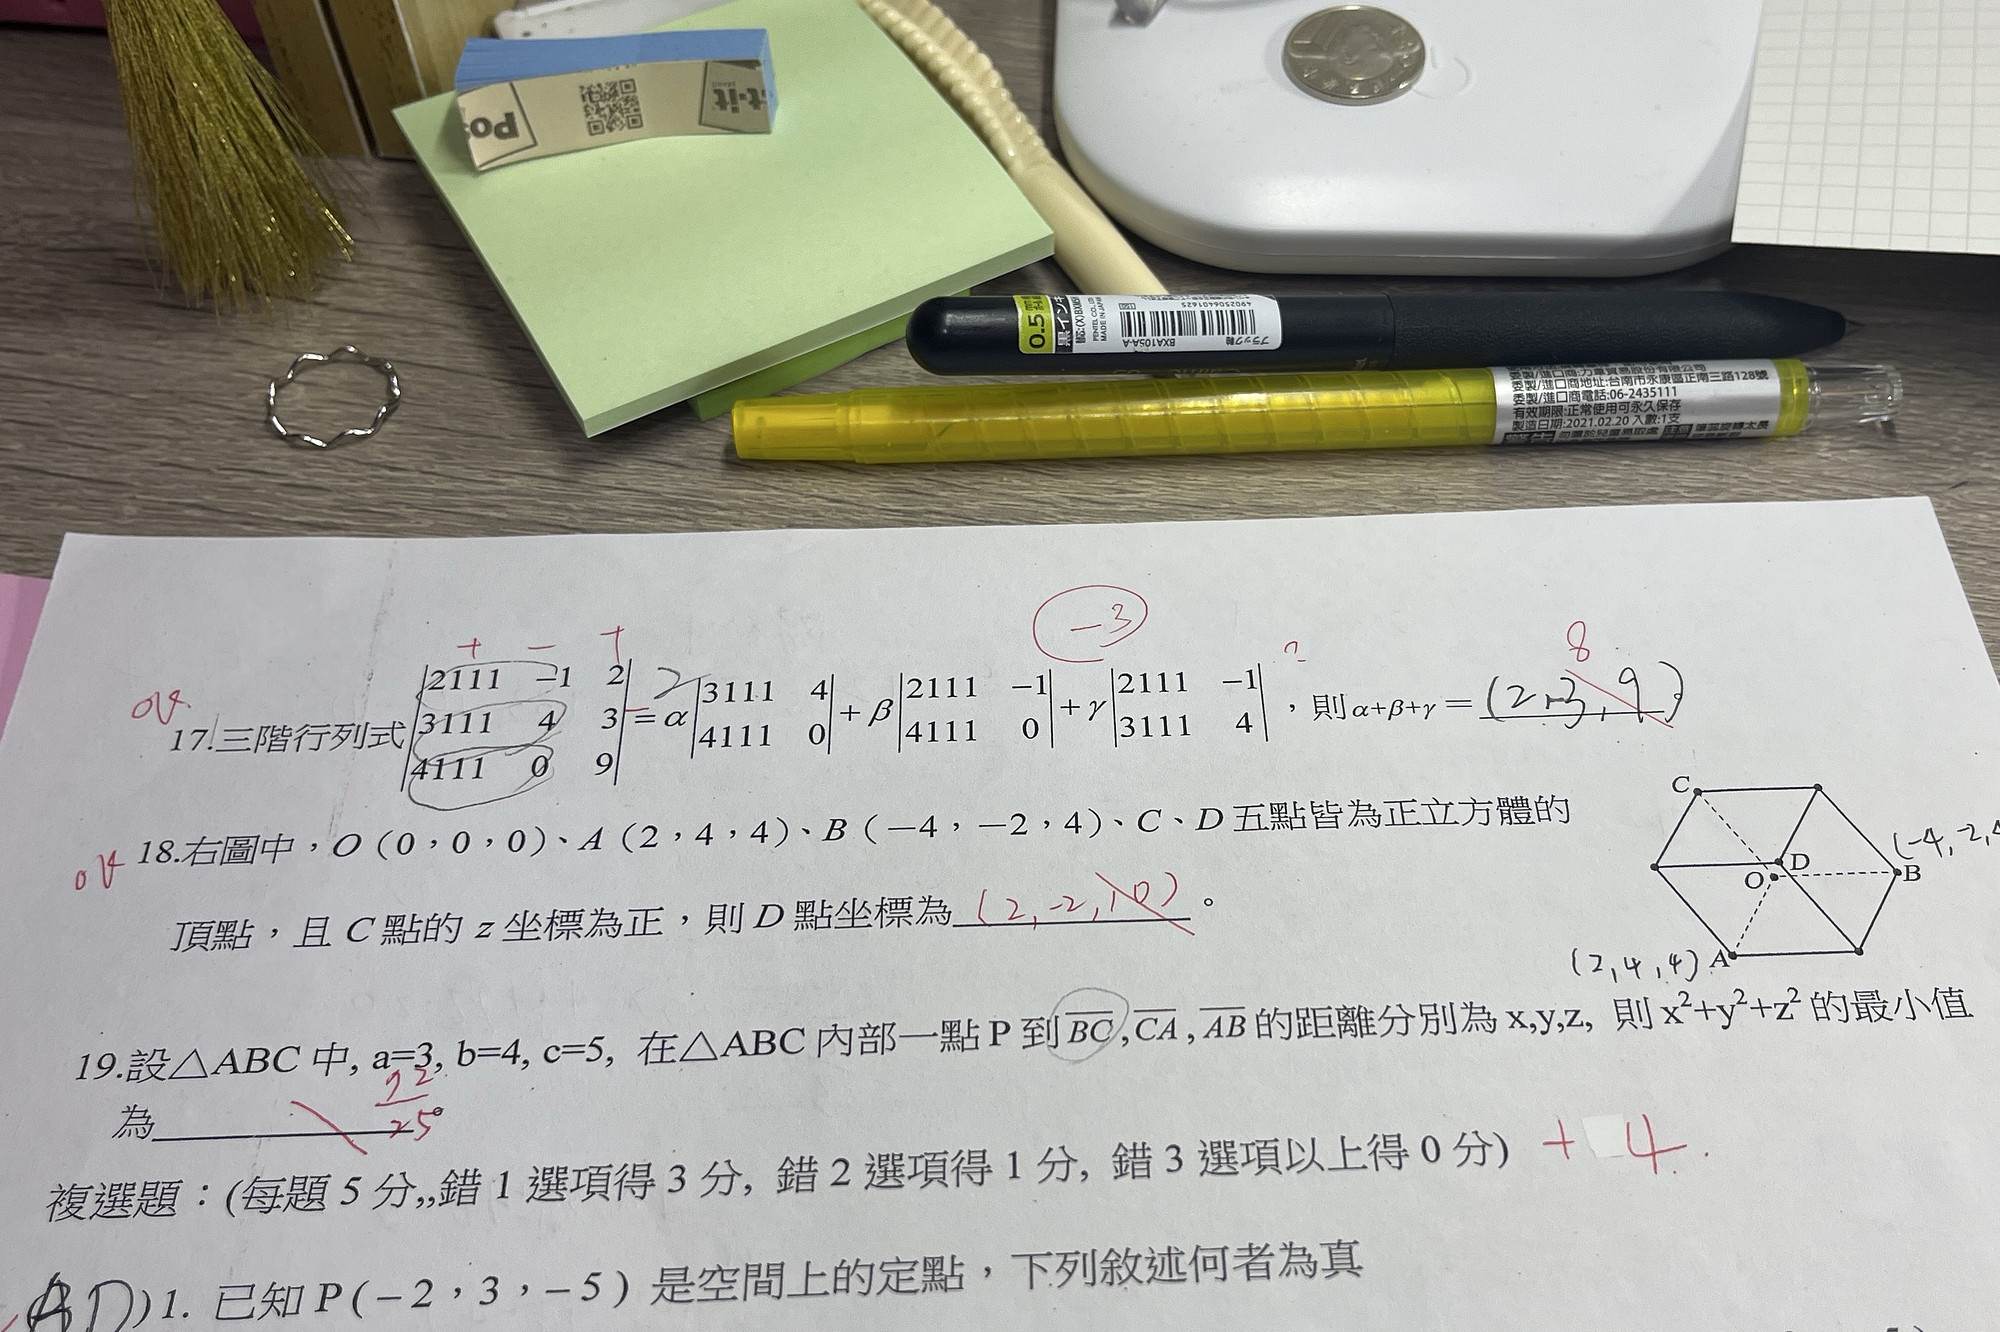 Pos
t-it
0.5
黒インキ
替芯:(X)BXM5
PENTEL CO., LTD.
MADE IN JAPAN
BXA105A-A
4902506401625
ブラック軸
委製/進口商:力韋貿易股份有限公司
委製/進口商地址:台南市永康區正南三路128號
委製/進口商電話:06-2435111
有效期限:正常使用可永久保存
製造日期:2021.02.20 入數:1支
-3
+ - +
?
8
17.三階行列式 |2111 -1 2| |3111 4 3| |4111 0 9| = α |3111 4| |4111 0| + β |2111 -1| |4111 0| + γ |2111 -1| |3111 4| ,則 α+β+γ = (2, -3, 9)。
2
18.右圖中,O(0,0,0)、A(2,4,4)、B(-4,-2,4)、C、D 五點皆為正立方體的
頂點,且 C 點的 z 坐標為正,則 D 點坐標為 (2,-2,10)。
C
D
O
B
(-4,-2,4
(2,4,4) A
19.設△ABC 中, a=3, b=4, c=5, 在△ABC 內部一點 P 到 BC, CA, AB 的距離分別為 x,y,z, 則 x²+y²+z² 的最小值
為 72/25。
複選題:(每題 5 分,,錯 1 選項得 3 分, 錯 2 選項得 1 分, 錯 3 選項以上得 0 分) + 4
(AD)1. 已知 P(-2,3,-5) 是空間上的定點,下列敘述何者為真